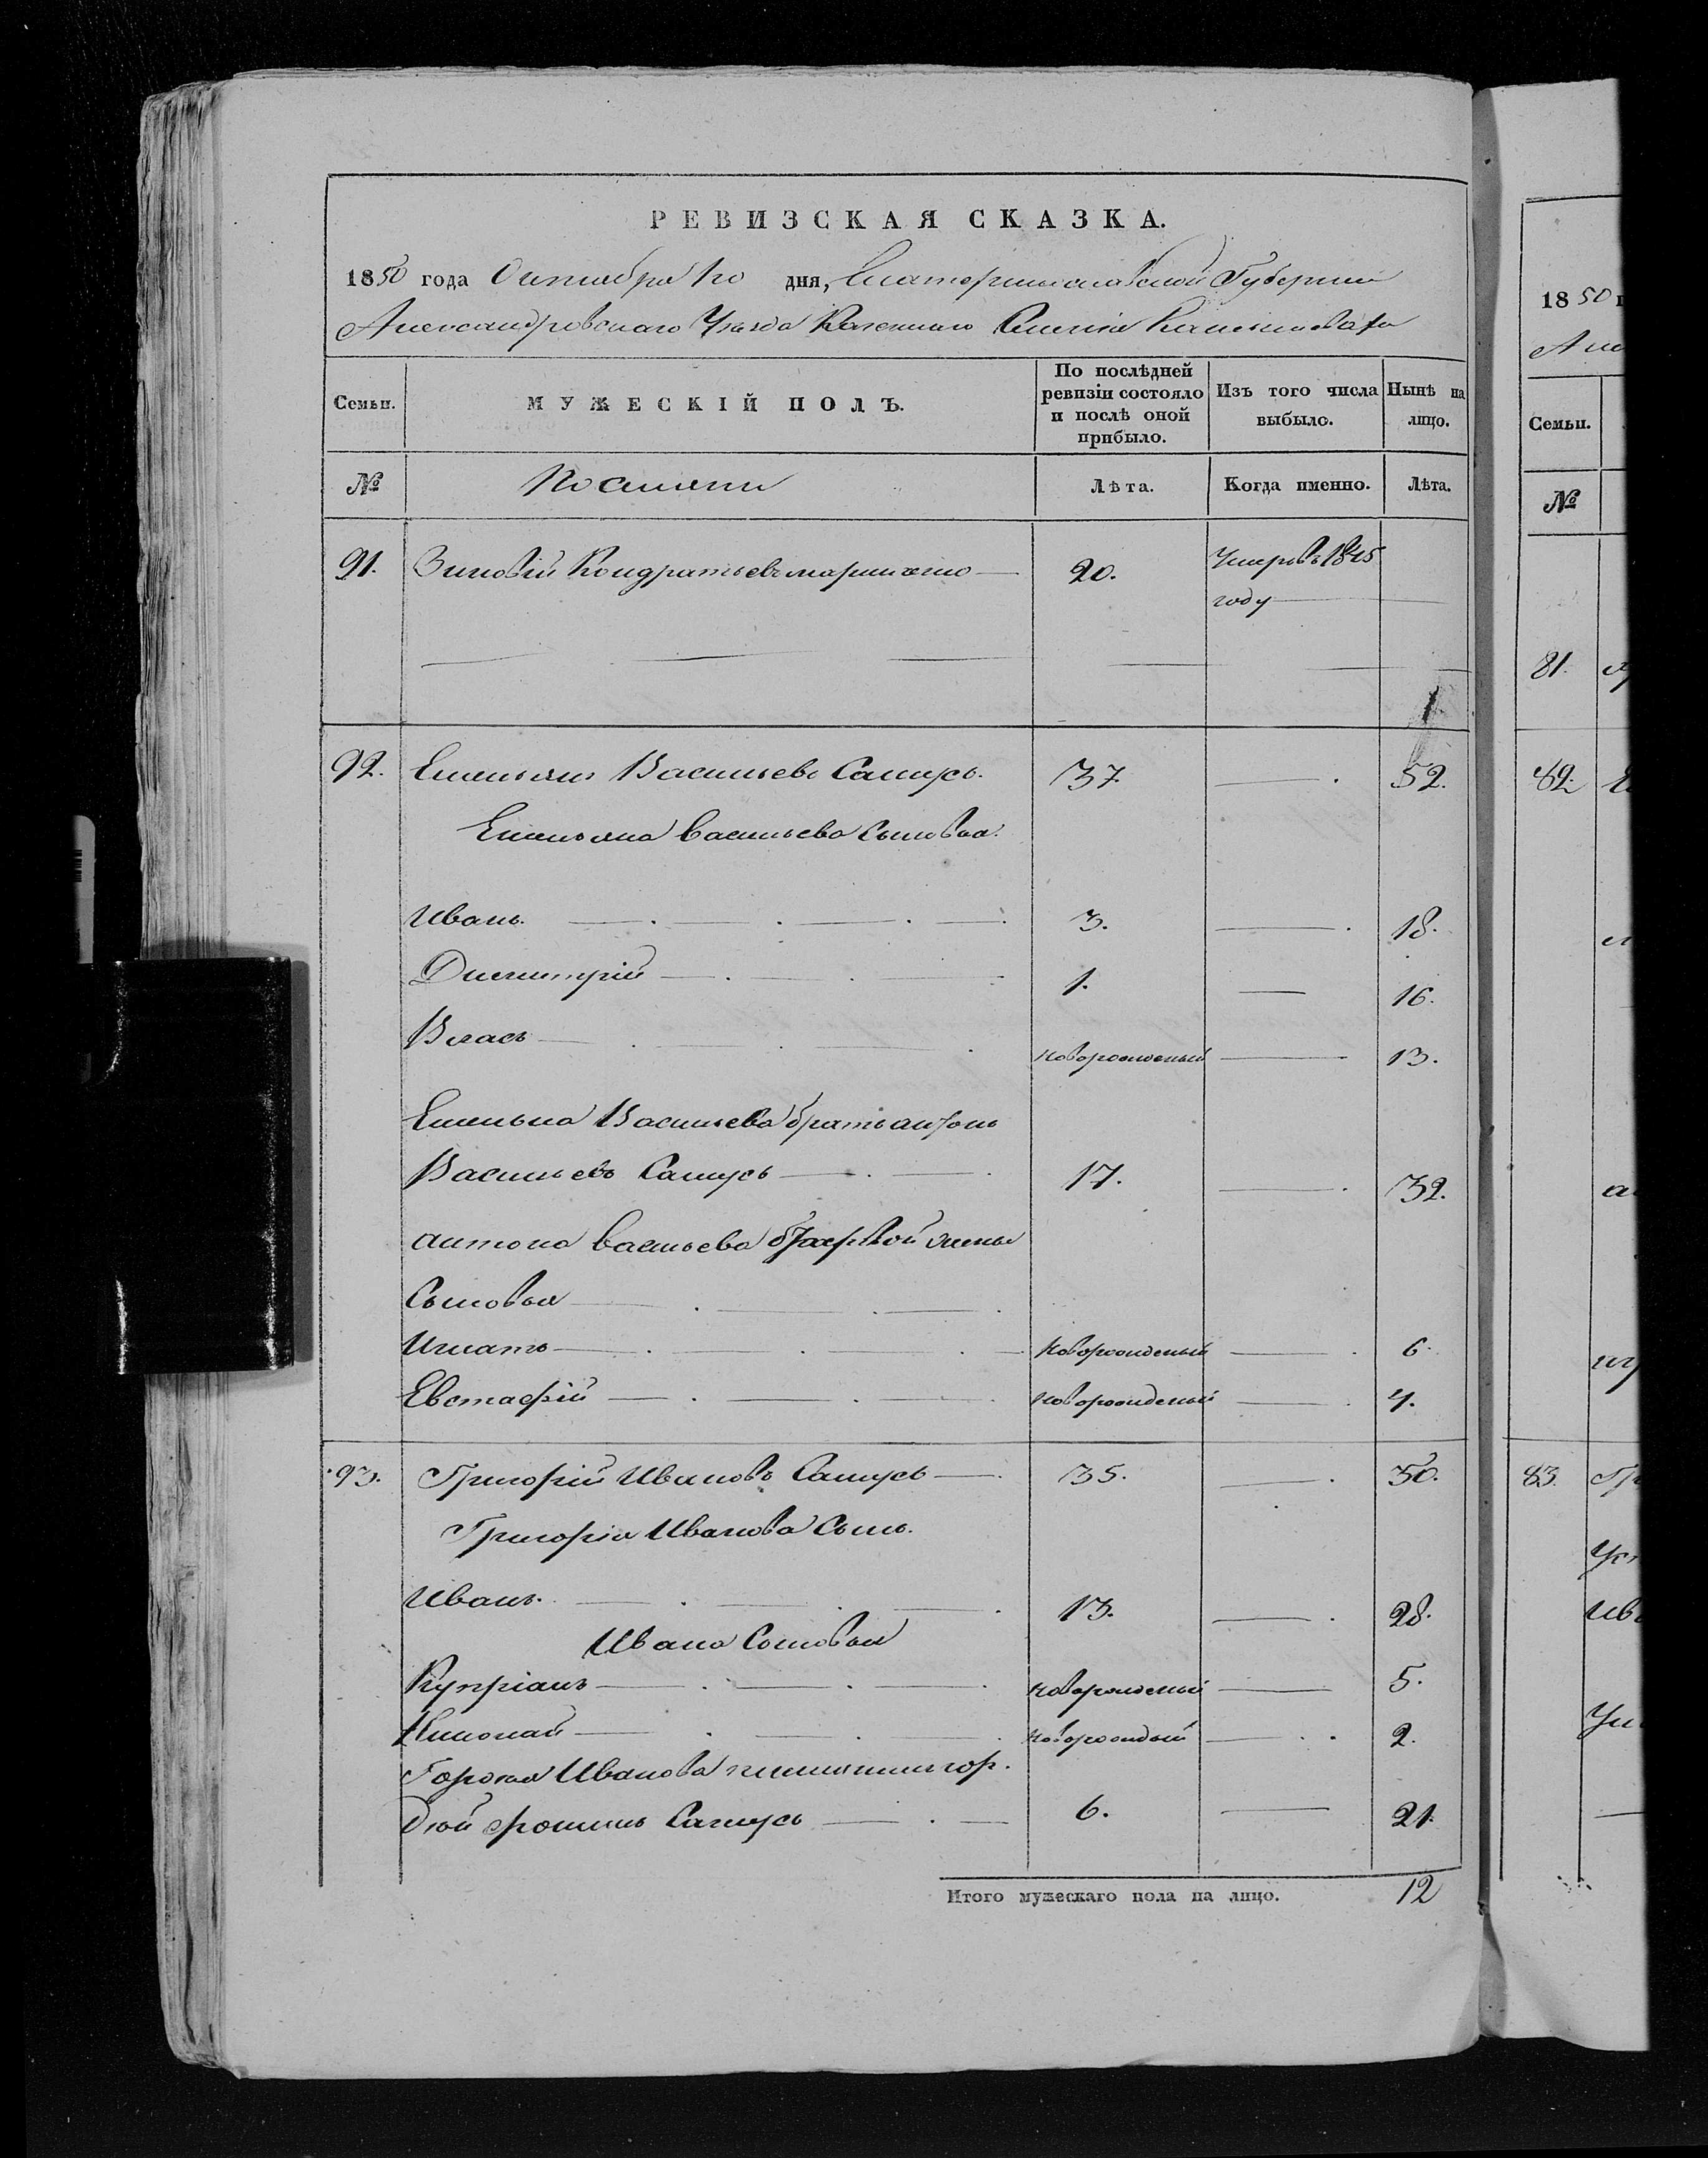 РЕВИЗСКАЯ СКАЗКА.
1850 года Октября 10 дня, Екатеринославской Губернии
Александровскаго Уезда Казеннаго Селенія
Семьи.
МУЖЕСКІЙ ПОЛЪ.
По послѣдней ревизіи состояло и послѣ оной прибыло.
Изъ того числа выбыло.
Нынѣ на лицо.
№
Лѣта.
Когда именно.
Лѣта.
91. Зиновій Кондратьевъ 20. Умеръ в 1845
году
1
92. Емельянъ Васильевъ Самусь. 37. 52.
Емельяна Васильева Сыновья.
Иванъ. 3. 18.
Дмитрій 1. 16.
Власъ новорожденый 13.
Емельяна Васильева братъ антонъ
Васильевъ Самусь 17. 32.
антона васильева жены
Сыновья
Игнатъ новорожденый 6.
Евстафій новорожденый 4.
93. Григорій Ивановъ Самусь 35. 50.
Григорія Иванова Сынъ.
Иванъ. 13. 28.
Ивана Сыновья
Купріанъ новорожденый 5.
Николай 2.
Иванова
Самусь 6. 21.
Итого мужескаго пола на лицо. 12
1850
Семьи.
№
81.
82.
83.